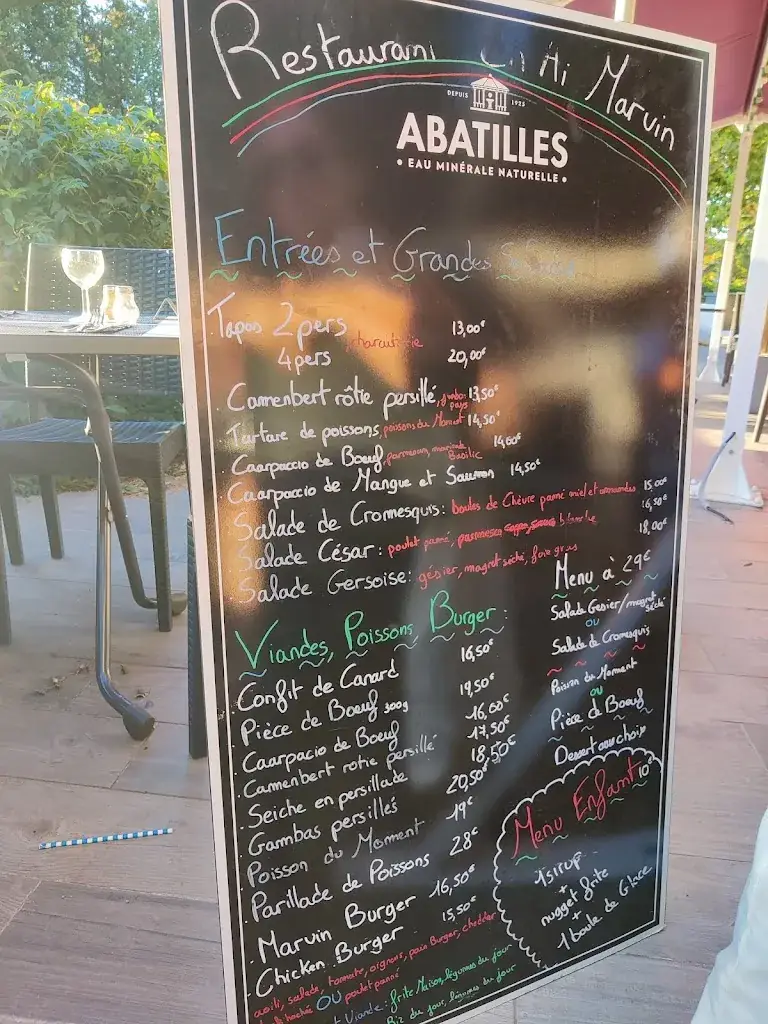 Restaurant Chti Marvin
DEPUIS 1925
ABATILLES
• EAU MINÉRALE NATURELLE •
Entrées et Grandes
Tapas 2 pers charcuterie 13,00€
4 pers 20,00€
Camenbert rôtie persillé, jambon pays 13,50€
Tartare de poissons, poissons du Moment 14,50€
Caarpaccio de Boeuf, parmesan, Basilic 14,00€
Caarpaccio de Mangue et Saumon 14,50€
Salade de Cromesquis: boules de Chèvre panné miel et amandes 15,00€
Salade César: poulet pané, parmesan 16,50€
Salade Gersoise: gésier, magret séché, foie gras 18,00€
Viandes, Poissons Burger:
Confit de Canard 16,50€
Pièce de Boeuf 300g 19,50€
Caarpacio de Boeuf 16,00€
Camenbert rotie persillé 17,50€
Seiche en persillade 18,50€
Gambas persillés 20,50€
Poisson du Moment 19€
Parillade de Poissons 28€
Marvin Burger 16,50€
Chicken Burger 15,50€
salade, tomate, oignons, pain Burger, cheddar
haché OU poulet panné
Viande: frite Maison, légumes du jour
Riz du jour, légumes du jour
Menu à 29€
Salade Gesier/magret séché
ou
Salade de Cromesquis
Poisson du Moment
ou
Pièce d Boeuf
Dessert au choix
Menu Enfant 10€
1 sirup
+
nugget frite
+
1 boule de Glace